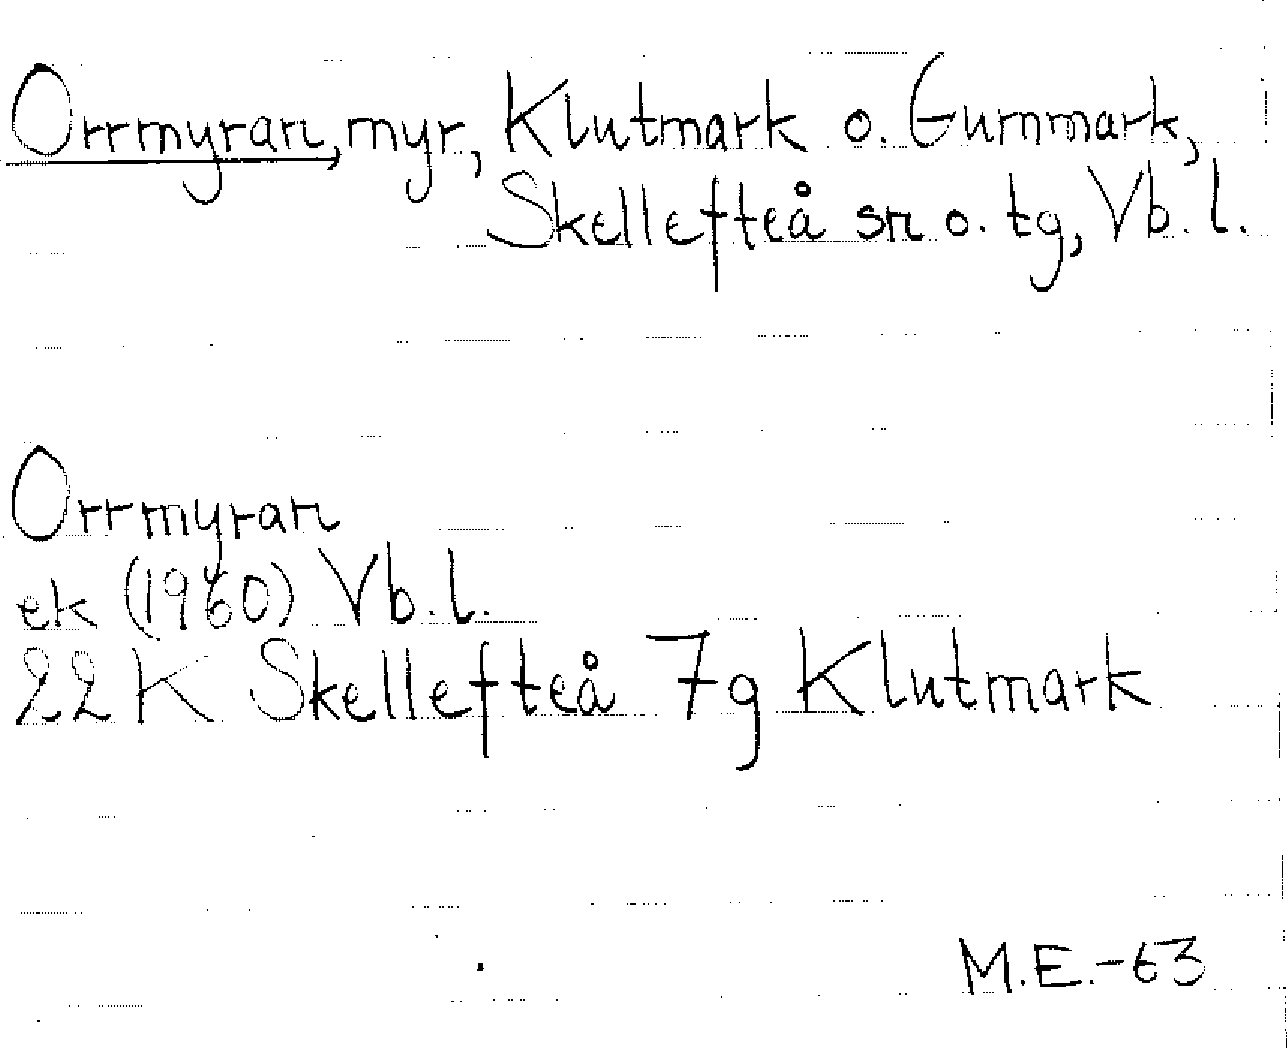 Orrmyran, myr, Klutmark o. Gummark,
Skellefteå sn o. tg, Vb. l.
Orrmyran
ek (1960) Vb. l.
22K Skellefteå 7g Klutmark
M.E.-63